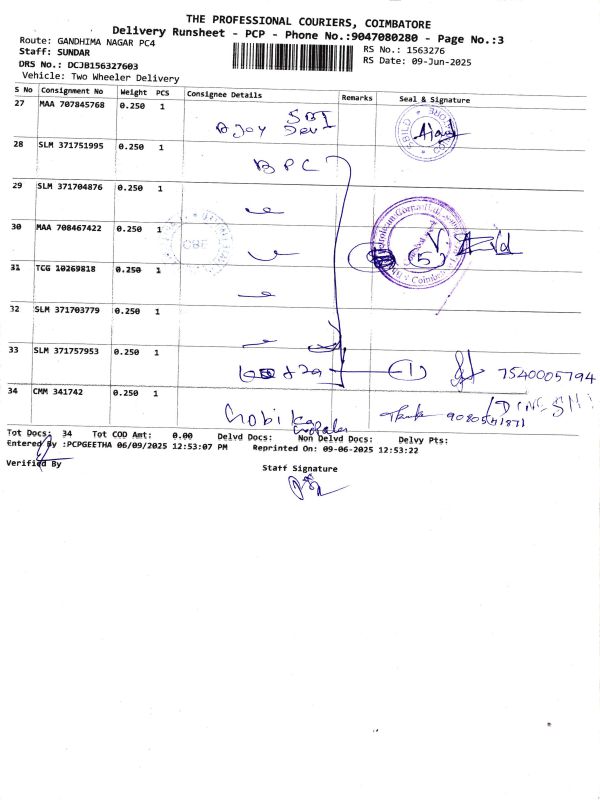 THE PROFESSIONAL COURIERS, COIMBATORE
Delivery Runsheet - PCP - Phone No.:9047080280 - Page No.:3
Route: GANDHIMA NAGAR PC4
Staff: SUNDAR
RS No.: 1563276
DRS No.: DCJB156327603
RS Date: 09-Jun-2025
Vehicle: Two Wheeler Delivery
S No Consignment No Weight PCS Consignee Details Remarks Seal & Signature
27 MAA 707845768 0.250 1 SBI
28 SLM 371751995 0.250 1 BPC
29 SLM 371704876 0.250 1
30 MAA 708467422 0.250 1 (5)
31 TCG 10269818 0.250 1
32 SLM 371703779 0.250 1
33 SLM 371757953 0.250 1 (1) 7540005794
34 CMM 341742 0.250 1 Gobika
Tot Docs: 34 Tot COD Amt: 0.00 Delvd Docs: Non Delvd Docs: Delvy Pts:
Entered By :PCPGEETHA 06/09/2025 12:53:07 PM Reprinted On: 09-06-2025 12:53:22
Verified By
Staff Signature